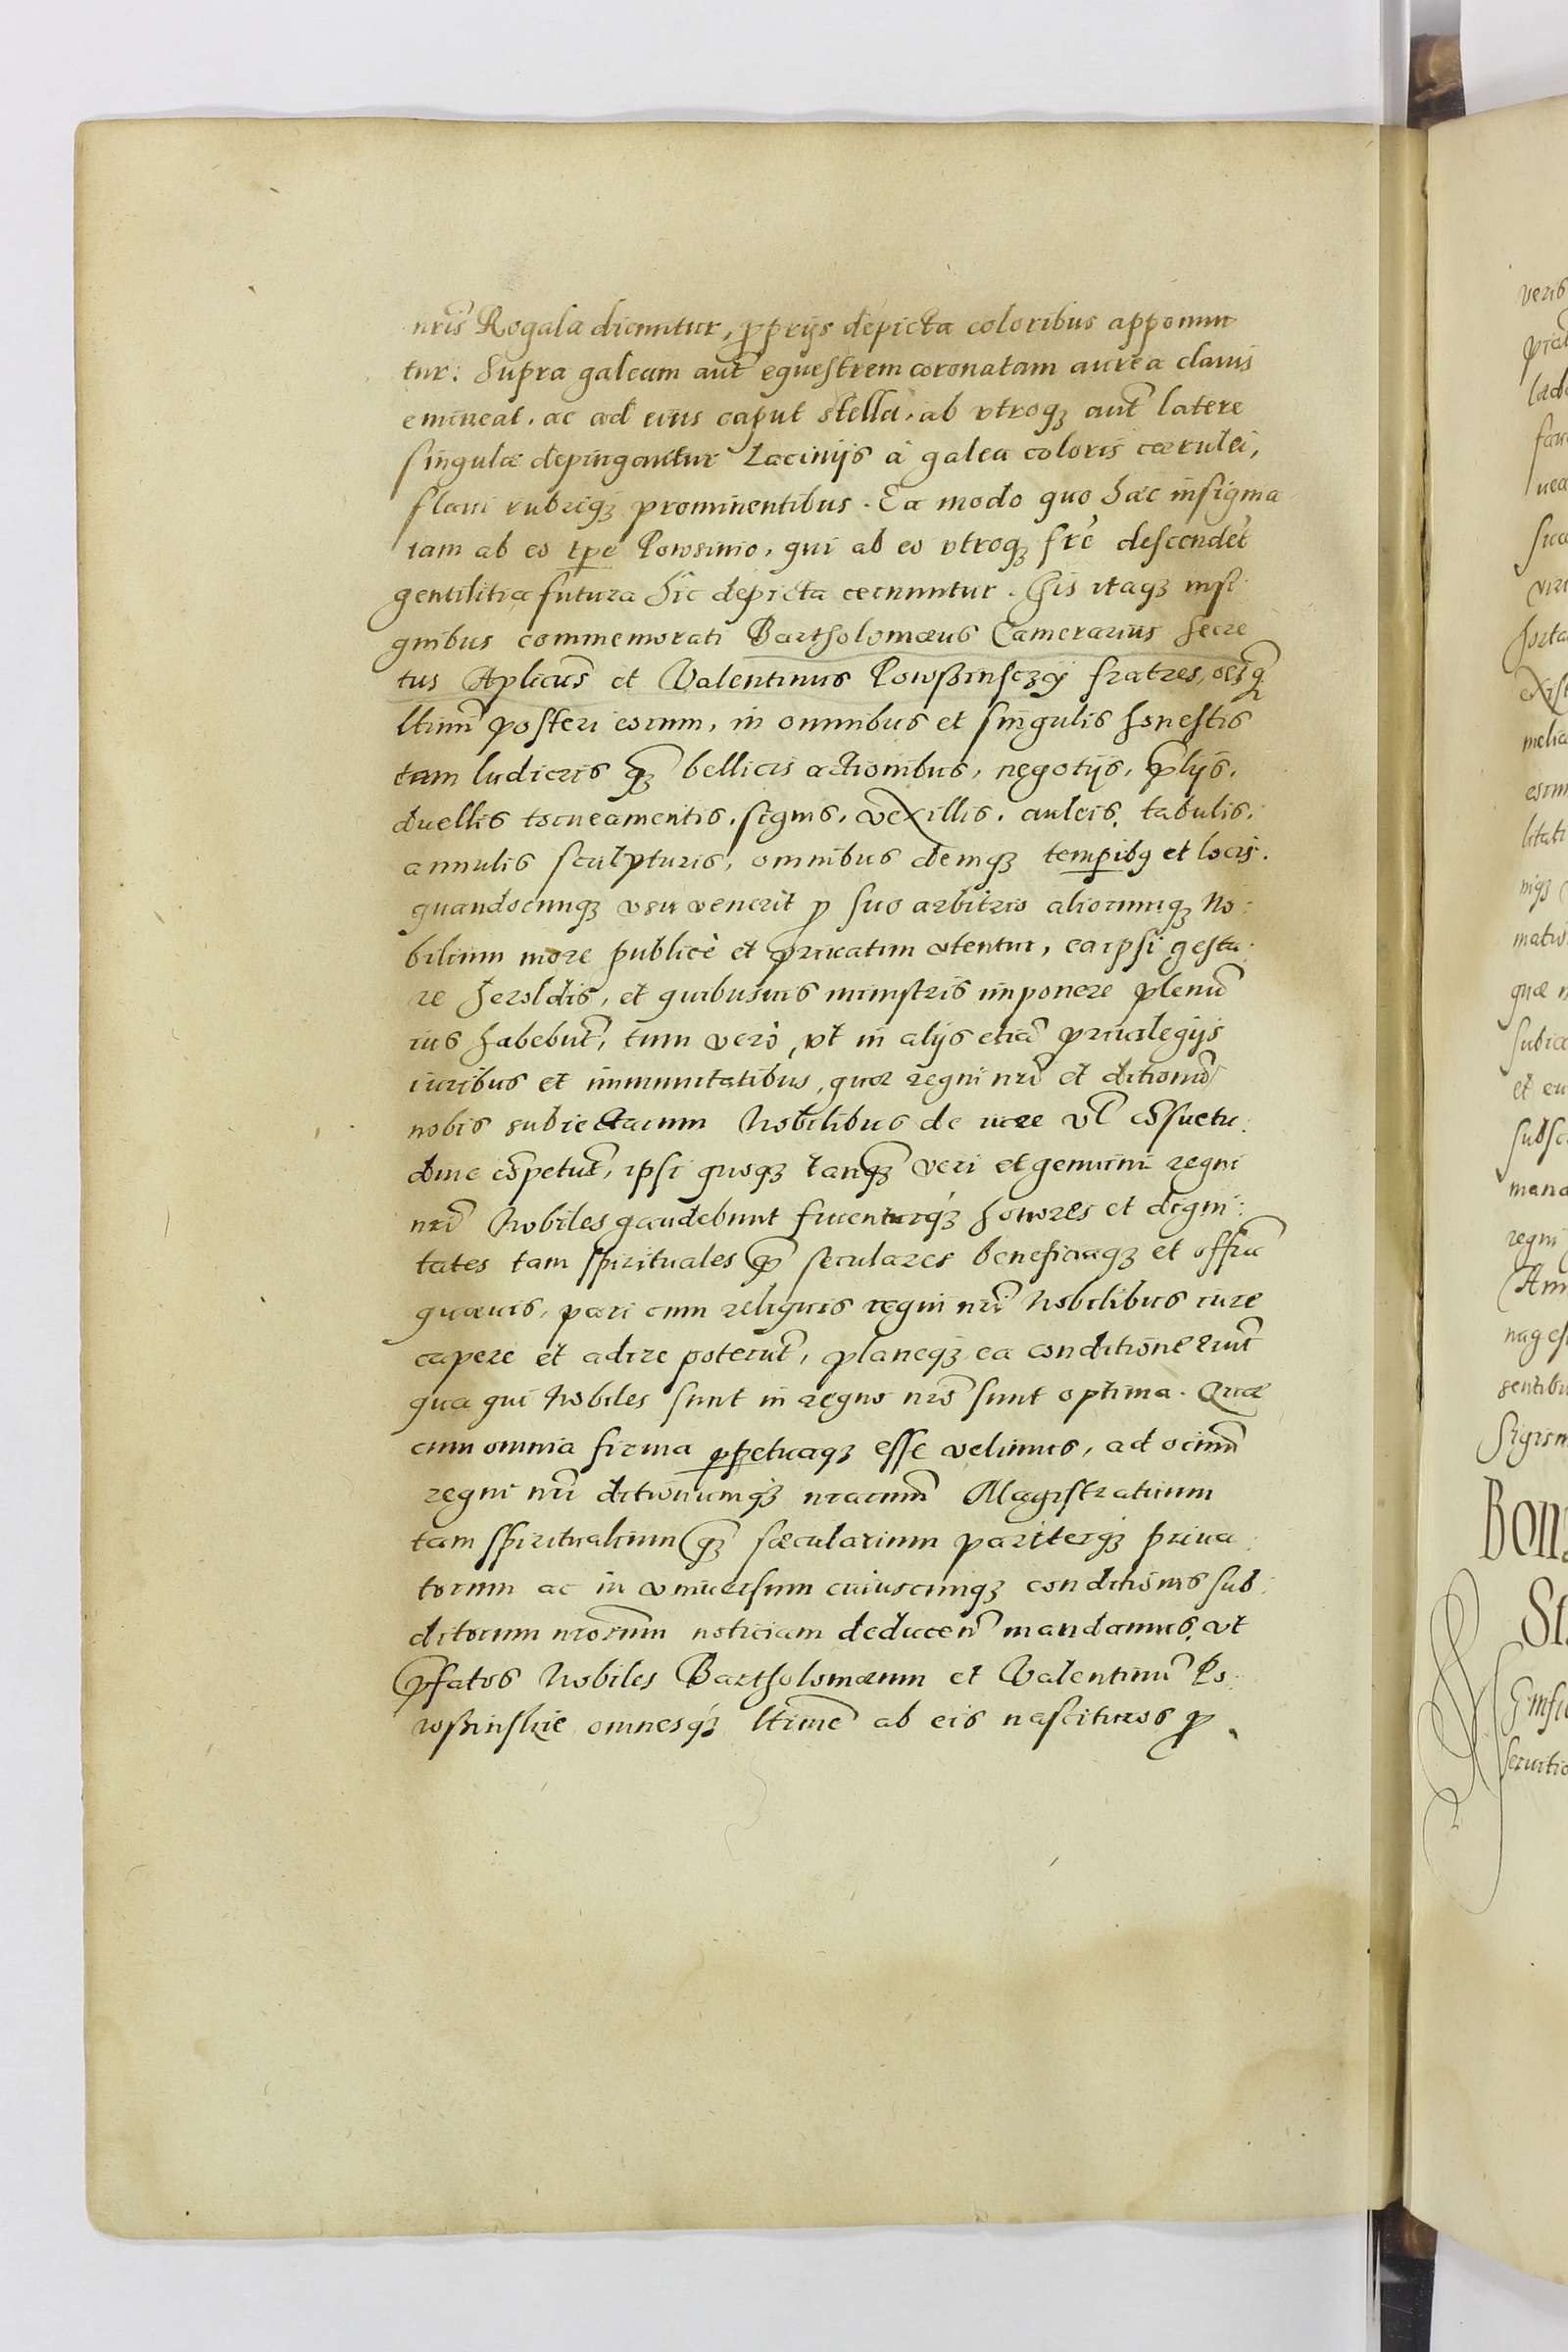 nr̃is Rogala dicuntur, ꝓprijs depicta coloribus apponun
tur: Supra galeam aut̃ equestrem coronatam aurea clauis
emineat, ac ad eius caput stella, ab vtroqꝫ aut̃ latere
singulæ depingantur Lacinijs à galea coloris cærulei,
flaui rubriqꝫ prominentibus. Ea modo quo hæc insignia
iam ab eo tp̃e Powsinio, qui ab eo vtroqꝫ fr̃e descendet̃
gentilitia futura hic depicta cernuntur. His itaqꝫ insi:
gnibus commemorati Bartholomæus Camerarius Secre
tus Aplicus̃ et Valentinus Powßinsczÿ fratres, oẽsqꝫ
ltimi posteri eorum, in omnibus et singulis honestis
tam ludicris qꝫ̃ bellicis actionibus, negotijs, p̃lijs,
duellis torneamentis, signis, vexillis, auleis, tabulis,
annulis sculpturis, omnibus demqꝫ temꝑibꝫ et locis.
quandocunqꝫ vsu venerit ꝓ suo arbitrio aliorumqꝫ No:
bilium more publicè et priuatim vtentur, ea ipsi gesta:
re heroldis, et quibusuis ministris imponere plenũ
ius habebunt̃, tum verò, vt in alijs etiã priuilegijs
iuribus et immunitatibus, quæ regni nr̃i et ditionũ
nobis subiectarum Nobilibus de iure vl̃ cõsuetu:
dine cõpetunt̃, ipsi quoqꝫ tanqꝫ̃ veri et genuini regni
nr̃i Nobiles gaudebunt fruenturqꝫ honores et digni:
tates tam spirituales qꝫ̃ seculares beneficiaqꝫ et officia
quæuis, pari cum reliquis regni nr̃i Nobilibus iure
capere et adire poterunt̃, planeqꝫ ea conditione erunt̃
qua qui Nobiles sunt in regno nr̃o sunt optima. Quæ
cum omnia firma ꝑpetuaqꝫ esse velimus, ad oĩum
regni nr̃i ditionumqꝫ nr̃arum Magistratuum
tam spiritualium qꝫ̃ sæcularium pariterqꝫ priua:
torum ac in vniuersum cuiuscunqꝫ conditionis sub:
ditorum nr̃orum noticiam deducen̄ mandamus, vt
p̃fatos Nobiles Bartholomæum et Valentinũ Po:
wßinskie omnesqꝫ ltime ab eis nascituros ꝓ